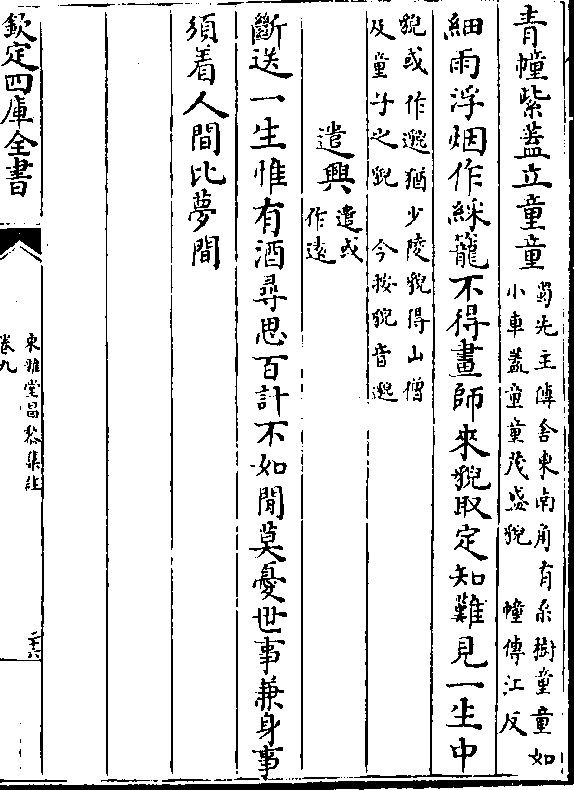 青幢紫蓋立童童
蜀先主傳舍東南角有桑樹童童如
小車蓋童童茂盛貌　幢傳江反
細雨浮烟作綵籠不得畫師來貌取定知難見一生中
貌或作邈猶少陵貌得山僧
及童子之貌　今按貌音邈
遣興
遣或
作遠
斷送一生惟有酒尋思百計不如閒莫憂世事兼身事
須着人間比夢間
欽定四庫全書
東雅堂昌黎集註
卷九